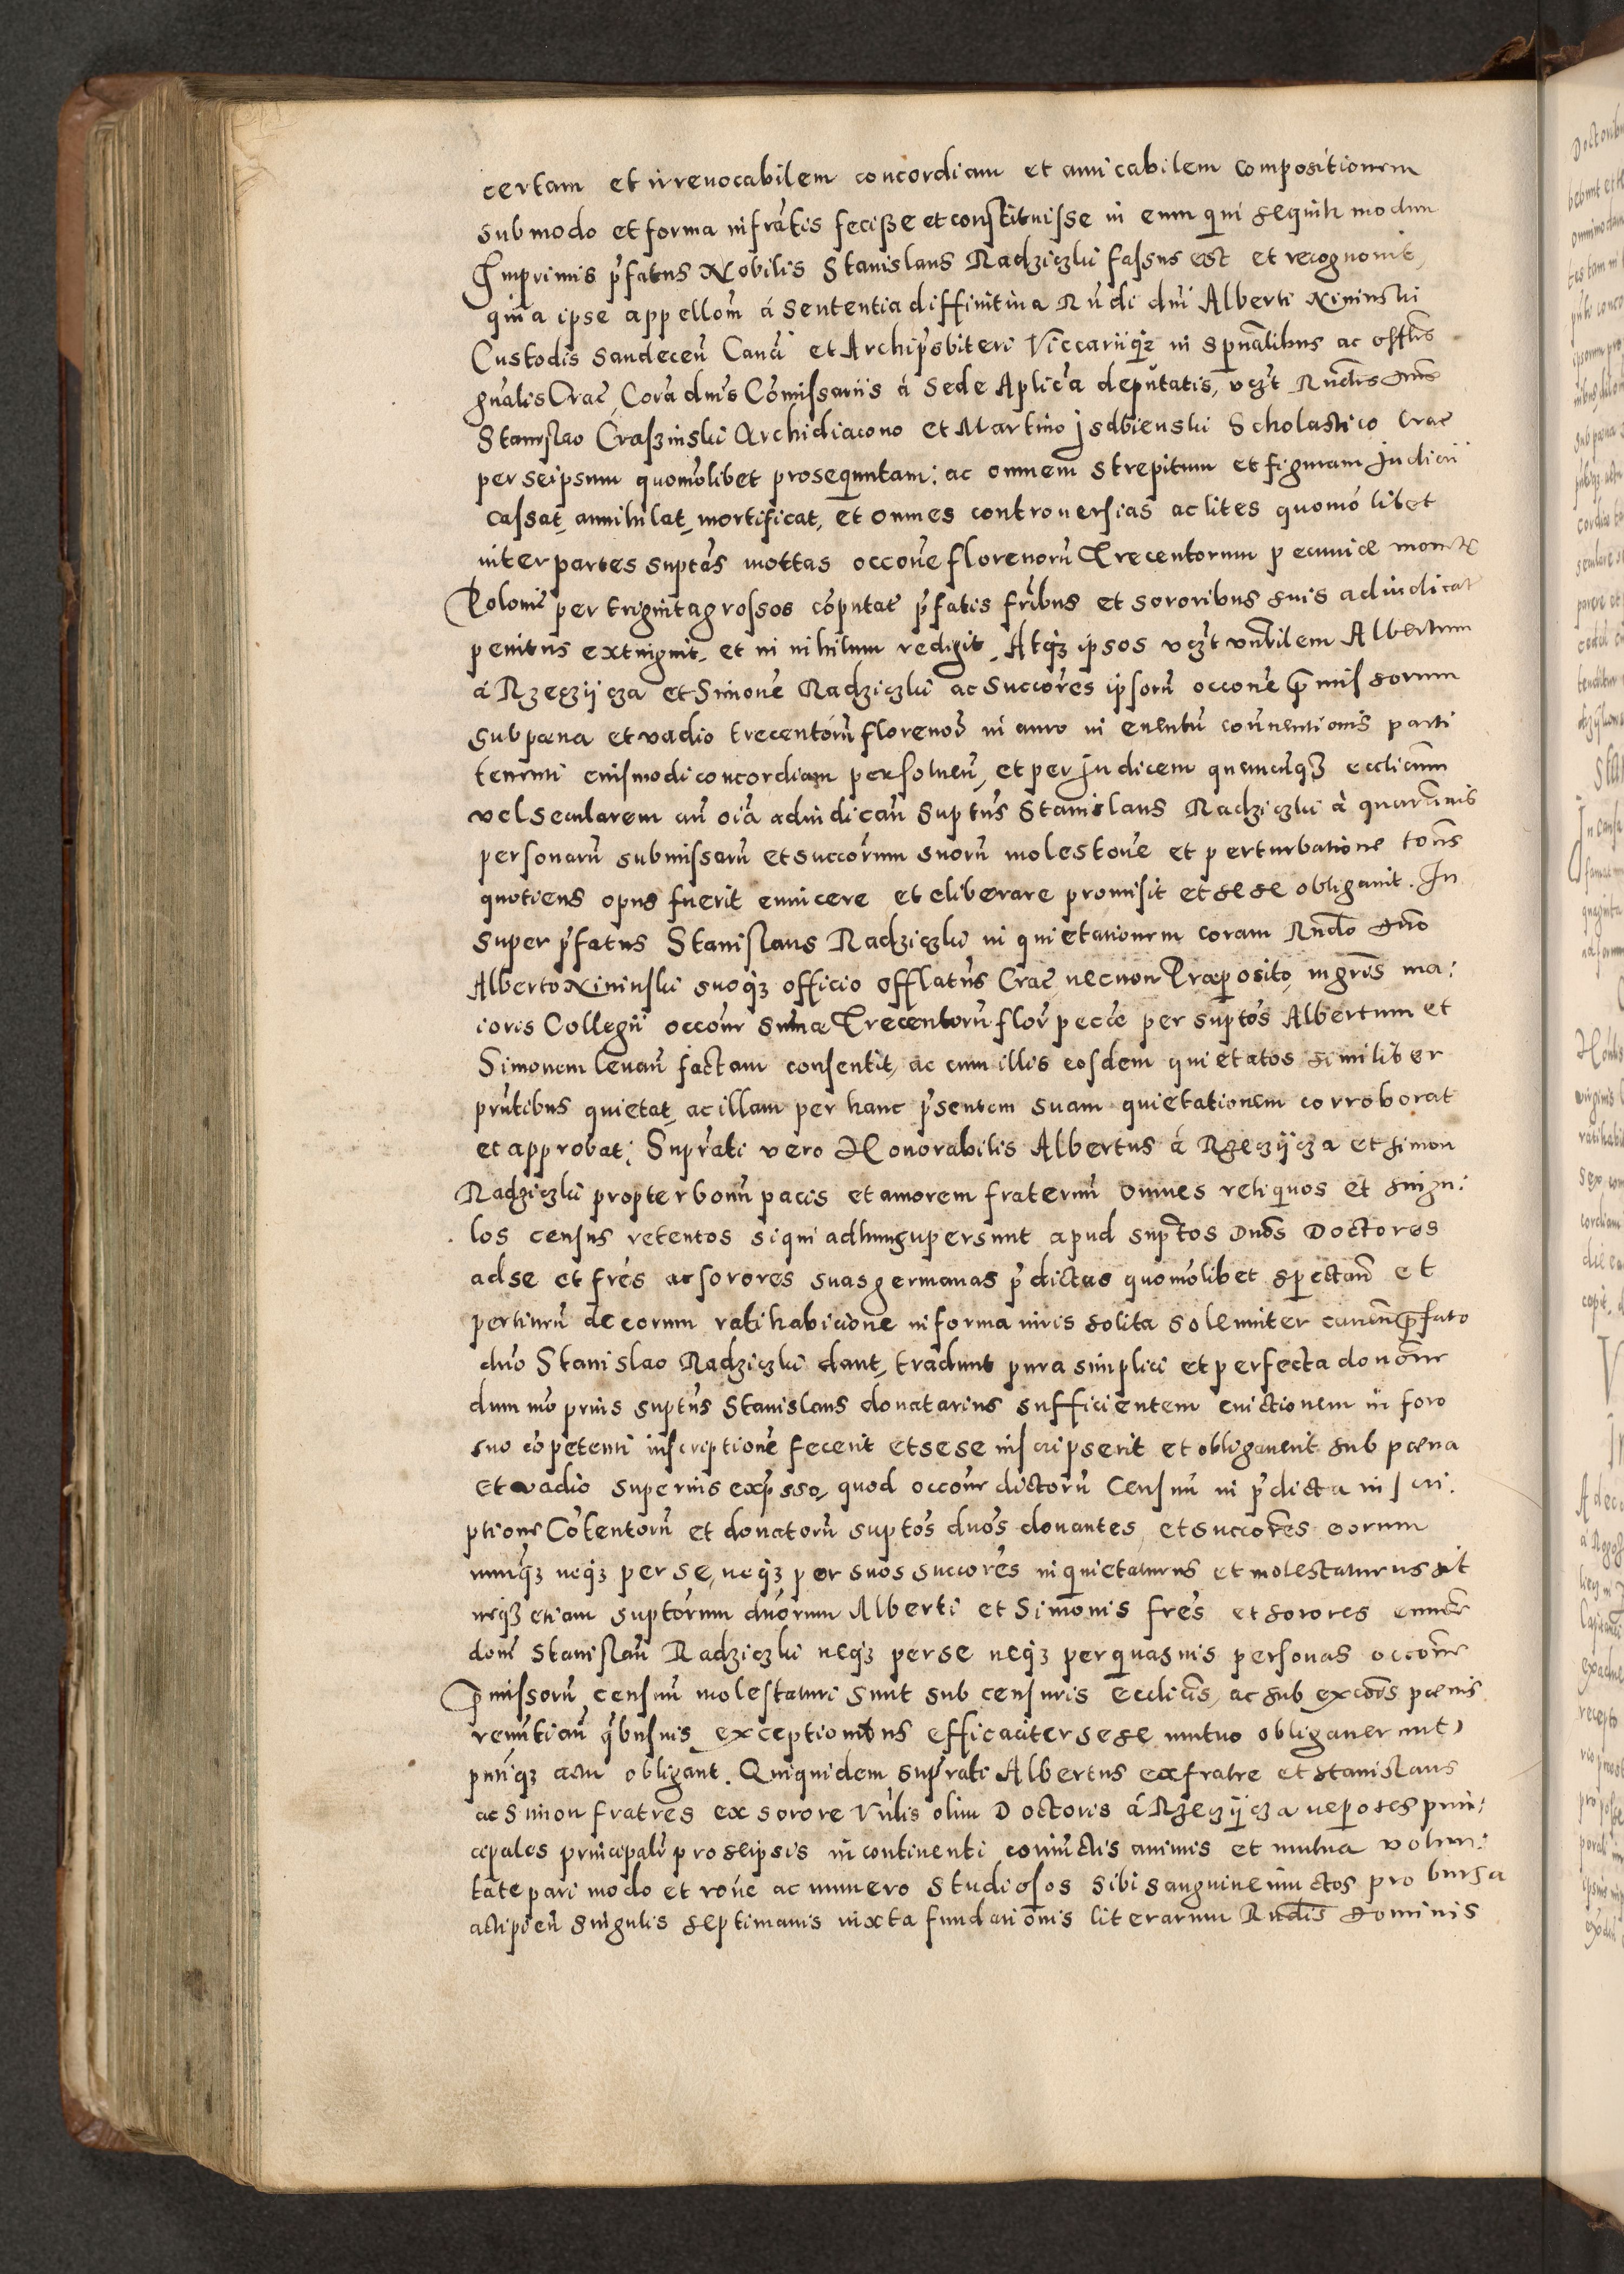 certam et irreuocabilem concordiam et amicabilem compositionem
sub modo et forma infrãtis feciße et constituisse in eum qui sequitr modum
Imprimis p̃fatus Nobilis Stanislaus Radziczki fassus est et recognouit,
quia ipse appellom̃ á sententia diffinitiua Rñdi dñi Alberti Nininski
Custodis Sandeceñ Canci et Archip̃sbiteri Viccariiq̃z in sp̃ualibus ac offlis
gñalis Crac̃, Corã dñis Com̃issariis á Sede Aplic̃a deputatis, vcz̃t Rñdis dñis
Stanislao Craszinski Archidiacono et Martino Jsdbienski Scholastico Crac̃
per seipsum quomõlibet prosequutam: ac omnem strepitum et figuram Judicii
cassat, annihilat, mortificat, et omnes controuersias ac lites quomõ libet
inter partes suptãs mottas occoñe florenorũ Trecentorum pecuniæ monetæ
Poloniẽ per triginta grossos cõputat̃ p̃fatis fr̃ibus et sororibus suis adiudicat̃
penitus extinguit, et in nihilum redigit. Atq̃z ipsos vcz̃t vnr̃bilem Albertum
á Rzeczijcza et Simonẽ Radziczki ac Succõres ipsorũ occonẽ p̃missorum
sub pæna et vadio trecentorũ florenoꝝ in auro in euentũ conuentionis parti
tenenti eiusmodi concordiam persoluen̄, et per Judicem quemcũq̃z eccliãm̃
vel secularem añ oiã adiudicañ Suptũs Stanislaus Radziczki á quarũuis
personarũ submissarũ et succorũm suorũ molestoñe et perturbatione tõns
quotiens opus fuerit euincere et eliberare promisit et sese obligauit. In
super p̃fatus Stanislaus Radziczki in quietationem coram Rñdo dño
Alberto Nininski suoq̃z officio Offlatus Crac̃ necnon Præposito, ingrõs ma:
ioris Collegii occoñr Sum̃æ Trecentorũ florp̃ pecc̃e per suptõs Albertum et
Simonem leuañ factam consentit, ac cum illis eosdem quietatos similiter
prñtibus quietat, ac illam per hanc p̃sentem suam quietationem corroborat
et approbat: Supr̃ati vero Honorabilis Albertus á Rzeczijcza et Simon
Radziczki propter bonũ pacis et amorem fraternũ omnes reliquos et singu:
los census retentos si qui adhuc supersunt apud suptõs Dños Doctores
ad se et frẽs ac sorores suas germanas p̃dictas quomõlibet spectañ et
pertineñ de eorum ratihabicione in forma iuris solita solemniter p̃fato
dño Stanislao Radziczki dant, tradunt pura simplici et perfecta donoñr
dum mõ prius suptũs Stanislaus donatarius sufficientem euictionem in foro
suo cõpetenti inscriptionẽ fecerit et sese inscripserit et obligauerit sub pæna
et vadio superius exp̃sso, quod occoñr dictorũ Censuũ in p̃dicta inscri:
ptione Cõtentorũ et donatorũ suptõs duõs donantes, et succorẽs eorum
nunq̃z neq̃z per se, neq̃z per suos succorẽs inquietaturus et molestaturus sit
neq̃z etiam suptõrum duõrum Alberti et Simonis frẽs et sorores
doñi Stanislaũ Radziczki neq̃z per se neq̃z per quasuis personas occoñe
p̃missorũ censuũ molestaturi sunt sub censuris eccliciis, ac sub excoõis pæenis
renũtiañ q̃busuis exceptionibus efficaciter sese mutuo obligauerunt,
pntiq̃z actu obligant. Quiquidem supr̃ati Albertus ex fratre et Stanislaus
ac Simon fratres ex sorore Vnr̃lis olim Doctoris á Rzeczijcza nepotes prin:
cipales principalr̃ pro seipsis in continenti coniũctis animis et mutua volun:
tate pari modo et roñe ac numero Studiosos sibi sanguine iunctos pro bursa
accipieñ singulis septimanis iuxta fundationis literarum Rñdis Dominis